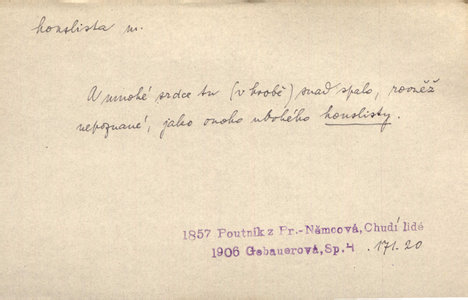 houslista m.
A mnohé srdce tu (v hrobě) snad spalo, rovněž
nepoznané, jako onoho ubohého houslisty.
1857 Poutník z Pr.-Němcová, Chudí lidé
1906 Gebauerová, Sp. 4 . 171. 20